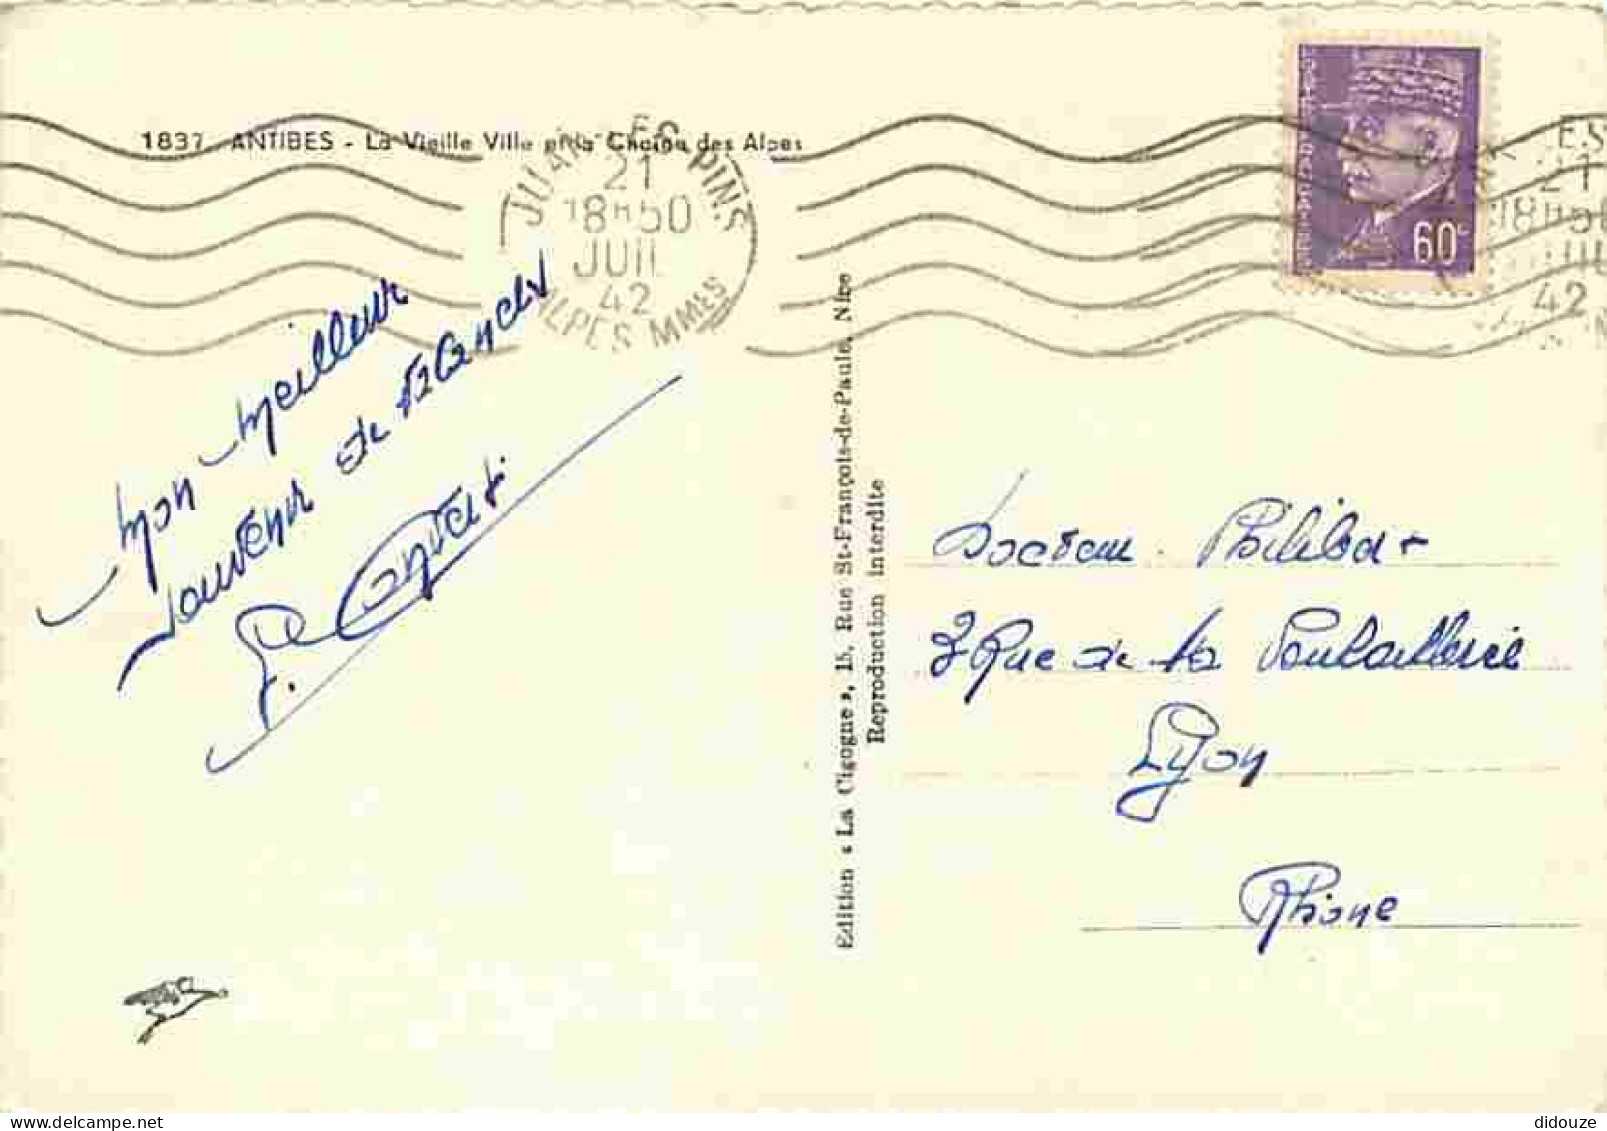 1837. ANTIBES - La Vieille Ville et la Chaîne des Alpes
JUAN LES PINS
21
18H50
JUIL
42
ALPES MMES
60c
ES
21
18H50
JUIL
42
mon meilleur
souvenir de vacances
Docteur Philibert
3 Rue de la Poulaillerie
Lyon
Rhône
Edition « La Cigogne », 15, Rue St-François-de-Paule, Nice
Reproduction interdite
didouze